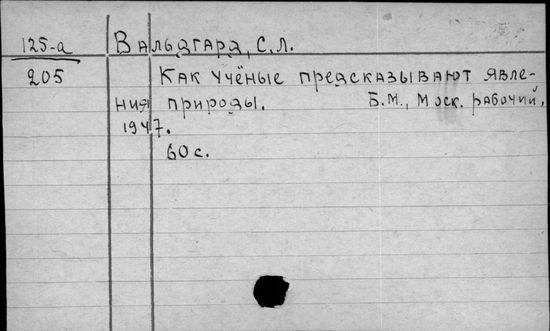 125-а Вальдгард, С.Л.
205 Как учёные предсказывают явле-
ния природы. Б.М., Моск. рабочий,
1947.
60с.